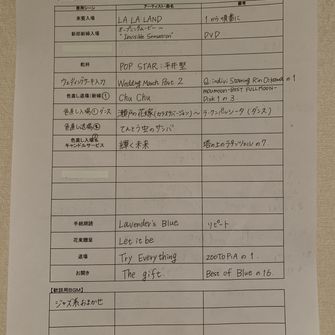 使用シーン アーティスト・曲名 備考
来賓入場 LA LA LAND 1から順番に
新郎新婦入場 オープニングムービー〜 "Invisible Sensation" DVD
乾杯 POP STAR:平井堅
ウェディングケーキ入刀 Wedding March Part 2 Q;indivi Starring Rin Oikawa の1
色直し退場(新婦)① Chu Chu moumoon-BEST FULLMOON- Disk1の3
色直し入場①ダンス 瀬戸の花嫁(カラオケバージョン)〜 ラ・クンパルシータ(ダンス)
色直し退場② てんとう虫のサンバ
色直し入場② キャンドルサービス 輝く未来 塔の上のラプンツェルの7
手紙朗読 Lavender's Blue リピート
花束贈呈 Let it be
退場 Try Everything ZOOTOPIAの1
お開き The gift Best of Blueの16
【歓談用BGM】
ジャズ系おまかせ